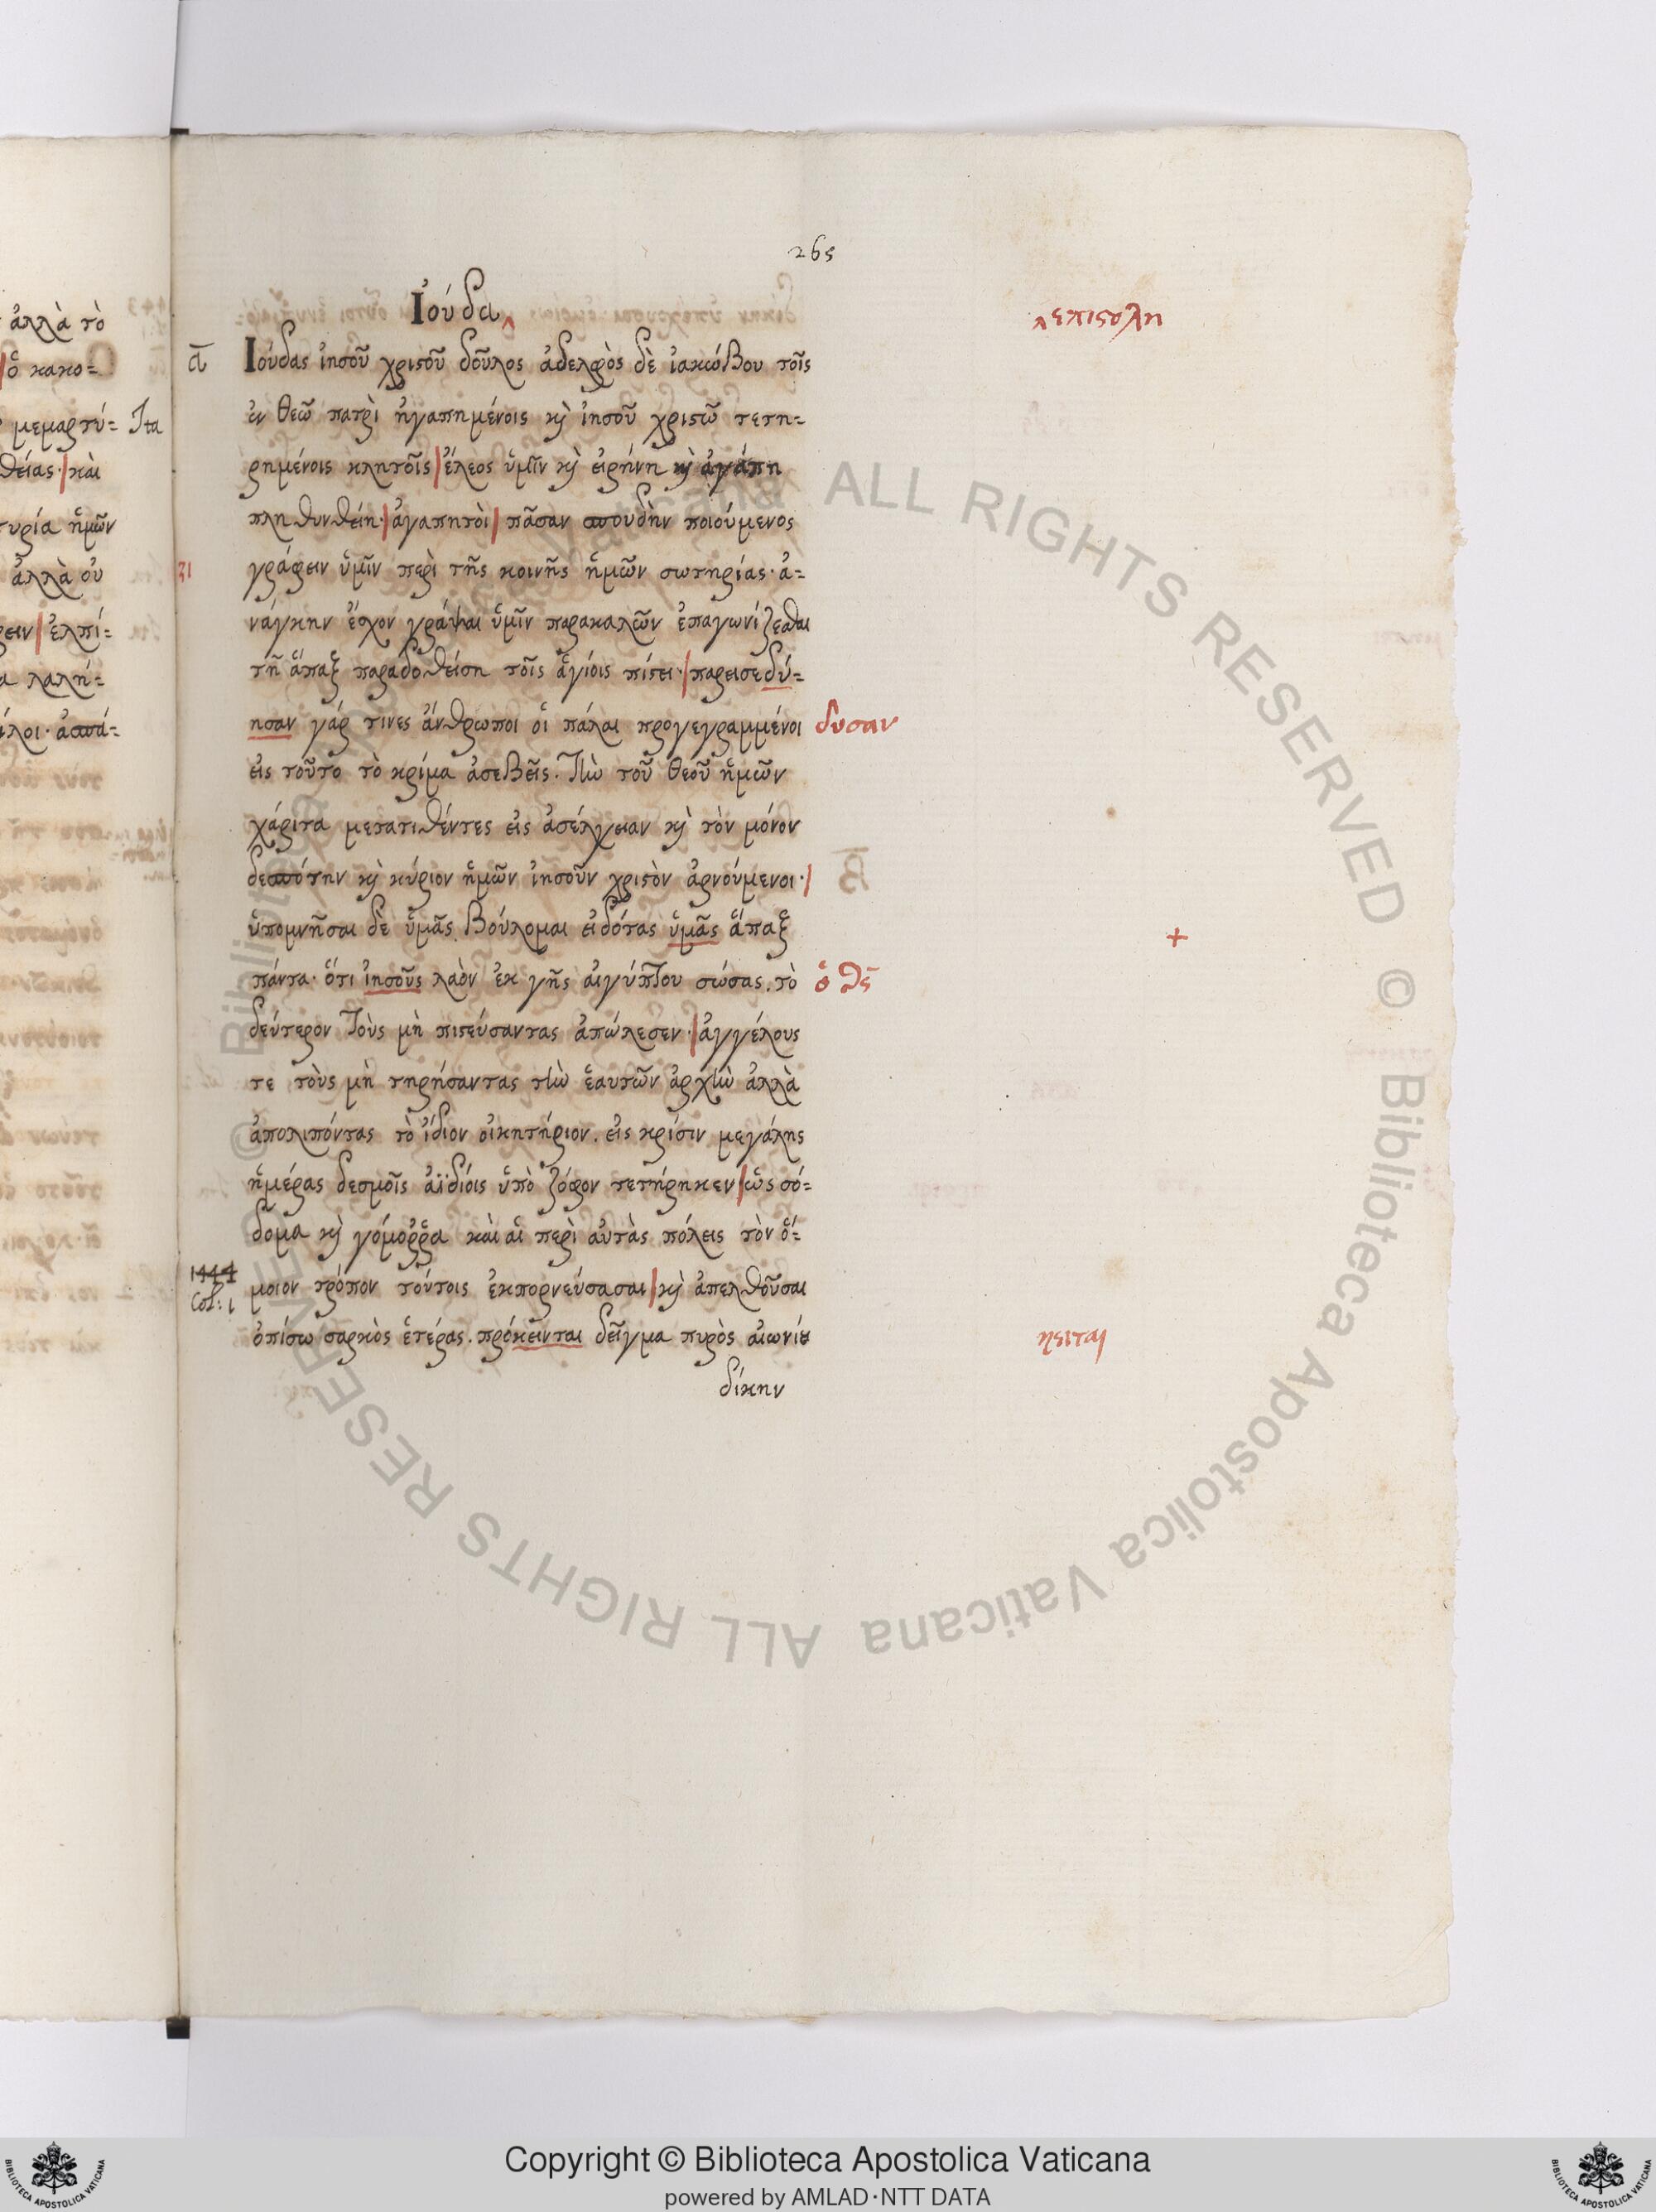 265
Ἰούδα ‸
‸ επιστολη
α Ἰούδας ἰησοῦ χριστοῦ δοῦλος ἀδελφὸς δὲ ἰακώβου τοῖς
ἐν θεῶ πατρὶ ἠγαπημένοις καὶ ἰησοῦ χριστῶ τετη=
ρημένοις κλητοῖς | ἔλεος ὑμῖν καὶ εἰρήνη καὶ ἀγάπη
πληθυνθείη· | ἀγαπητοὶ | πᾶσαν σπουδὴν ποιούμενος
γράφειν ὑμῖν περὶ τῆς κοινῆς ἡμῶν σωτηρίας· ἀ=
νάγκην ἔσχον γράψαι ὑμῖν παρακαλῶν ἐπαγωνίζεσθαι
τῇ ἅπαξ παραδοθείση τοῖς ἁγίοις πίστει· | παρεισεδύ=
ησαν γάρ τινες ἄνθρωποι οἱ πάλαι προγεγραμμένοι δυσαν
εἰς τοῦτο τὸ κρίμα ἀσεβεῖς. Τὴν τοῦ θεοῦ ἡμῶν
χάριτα μετατιθέντες εἰς ἀσέλγειαν καὶ τὸν μόνον
δεσπότην καὶ κύριον ἡμῶν ἰησοῦν χριστὸν ἀρνούμενοι· |
ὑπομνῆσαι δὲ ὑμᾶς βούλομαι εἰδότας ὑμᾶς ἅπαξ +
πάντα· ὅτι ἰησοῦς λαὸν ἐκ γῆς αἰγύπτου σώσας. τὸ ὁ θς
δεύτερον τοὺς μὴ πιστεύσαντας ἀπώλεσεν· | ἀγγέλους
τε τοὺς μὴ τηρήσαντας τὴν ἑαυτῶν ἀρχὴν ἀλλὰ
ἀπολιπόντας τὸ ἴδιον οἰκητήριον. εἰς κρίσιν μεγάλης
ἡμέρας δεσμοῖς ἀϊδίοις ὑπὸ ζόφον τετήρηκεν | ὡς σό=
δομα καὶ γόμοῤῥα καὶ αἱ περὶ αὐτὰς πόλεις τὸν ὅ=
1444
Col: 1
μοιον τρόπον τούτοις ἐκπορνεύσασαι | καὶ ἀπελθοῦσαι
ὀπίσω σαρκὸς ἑτέρας. πρόκεινται δεῖγμα πυρὸς αἰωνίου
δίκην
ἀλλὰ τὸ
| ὁ κακο=
μεμαρτύ= Ita
θείας· | καὶ
τυρία ἡμῶν
ἀλλὰ οὐ
ἐλπί=
λαλή=
ίλοι· ἀσπά=
Copyright © Biblioteca Apostolica Vaticana
powered by AMLAD·NTT DATA
© Biblioteca Apostolica Vaticana ALL RIGHTS RESERVED
© Biblioteca Apostolica Vaticana ALL RIGHTS RESERVED
BIBLIOTECA APOSTOLICA VATICANA
BIBLIOTECA APOSTOLICA VATICANA